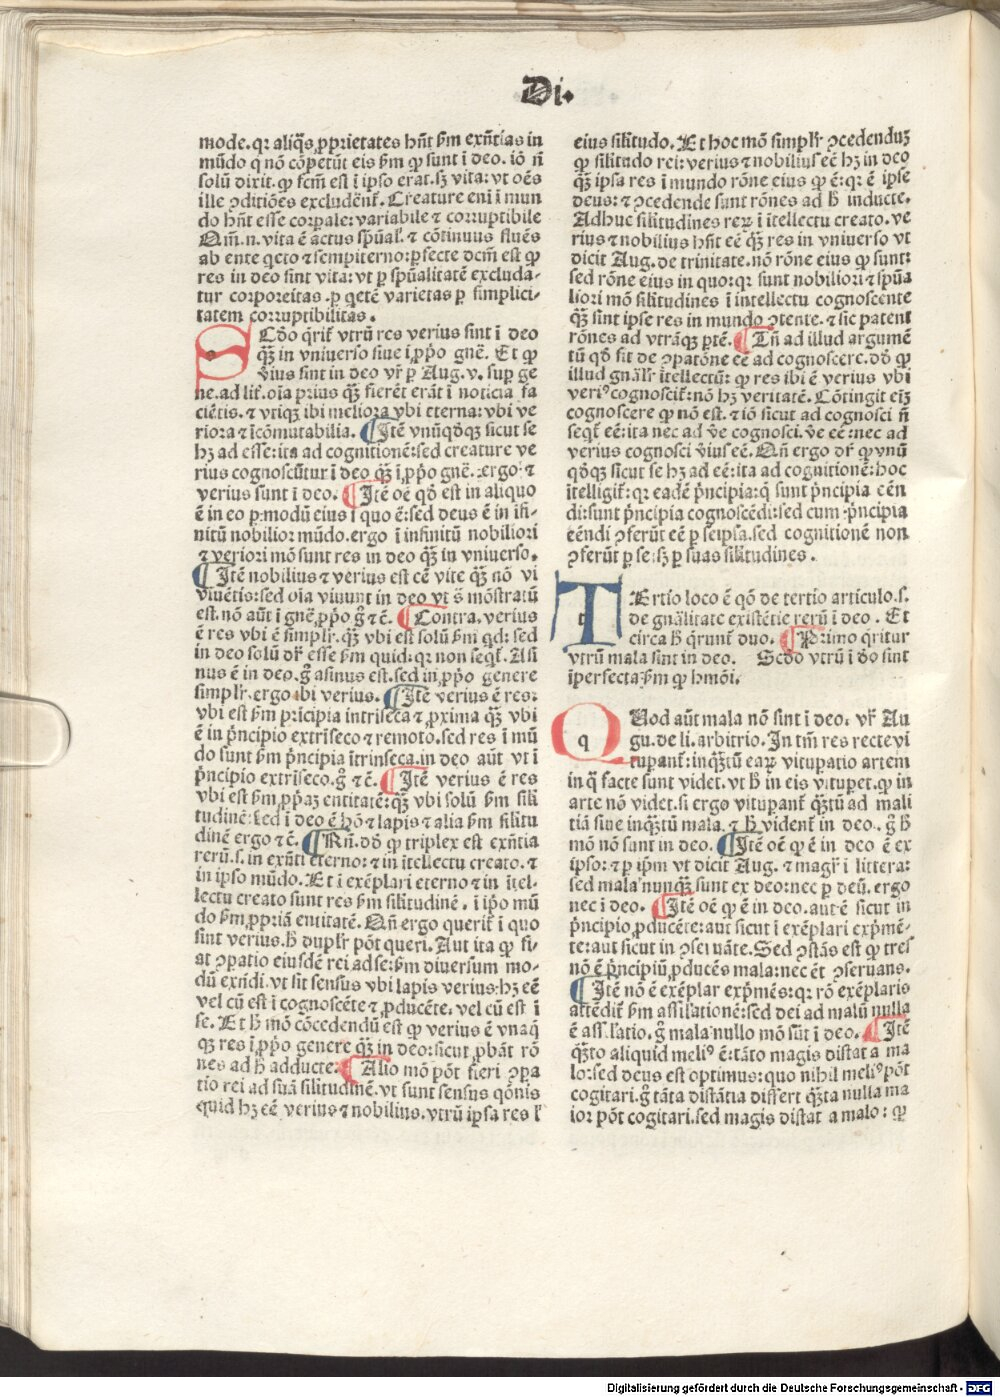 Di.
mode. qꝛ aliqͥs ꝓprietates hn̄t ẜm exn̄tias in
mūdo q̄ nō cōpetūt eis ẜm ꝙ sunt ī deo. iō n̄
solū dixit. ꝙ fcm̄ est ī ipso erat. sꝫ vita: vt oēs
ille ꝯditiōes excludēnt̄. Creature eni ī mun
do hn̄t esse corpale: variabile ⁊ corruptibile
Qm̄. n. vita ē actus spūal̓. ⁊ cōtinuus fluēs
ab ente qeto ⁊ sempiterno: ꝑfecte dcm̄ est ꝙ
res in deo sint vita: vt ꝑ spūalitatē excluda-
tur corporeitas. ꝑ qetē varietas ꝑ simplici-
tatem corruptibilitas.
SCdo qrit̄ vtrū res verius sint ī deo
qꝫ̄ in vniuerso siue ī ꝓpͦo gn̄e. Et ꝙ
v̄ius sint in deo vr̄ ꝑ Aug. v. suꝑ ge
ne. ad lit̄. oīa prius qꝫ̄ fierēt erāt ī noticia fa
ciētis. ⁊ vtiqꝫ ibi meliora vbi eterna: vbi ve
riora ⁊ īcōmutabilia. ¶ Itē vnūqdqꝫ sicut se
hꝫ ad esse: ita ad cognitionē: sed creature ve
rius cognoscūtur ī deo qꝫ̄ ī ꝓpͦo gn̄e. ergo ⁊
verius sunt ī deo. ¶ Itē oē qd̄ est in aliquo
ē in eo ꝑ modū eius ī quo ē: sed deus ē in ifi-
nitū nobilior mūdo. ergo ī infinitū nobiliori
⁊ veriori mō sunt res in deo qꝫ̄ in vniuerso.
¶ Itē nobilius ⁊ verius est eē vite qꝫ̄ nō vi
viuētis: sed oīa viuunt in deo vt s̄ mōstratū
est. nō aūt ī gn̄e ꝓpͦo. ḡ ⁊ē. ¶ Contra. verius
ē res vbi ē simplr̄. qꝫ̄ vbi est solū ẜm qd: sed
in deo solū dr̄ esse ẜm quid: qꝛ non seqt̄. Asi
nus ē in deo. ḡ asinus est. sed in ꝓpͦo genere
simplr̄. ergo ibi verius. ¶ Itē verius ē res:
vbi est ẜm pricipia intriseca ⁊ ꝓxima qꝫ̄ vbi
ē in pͥncipio extriseco ⁊ remoto. sed res ī mū
do sunt ẜm pͥncipia ītrinseca. in deo aūt vt ī
pͥncipio extriseco. ḡ ⁊ē. ¶ Itē verius ē res
vbi est ẜm ꝓpͥaꝫ entitatē: qꝫ̄ vbi solū ẜm sil̓i
tudinē: sed ī deo ē hō ⁊ lapis ⁊ alia ẜm silitu
dinē ergo ⁊ē. ¶ Rn̄. dd̄ ꝙ triplex est exn̄tia
rerū. s. in exn̄ti eterno: ⁊ in ītellectu creato. ⁊
in ipso mūdo. Et ī exēplari eterno ⁊ in ītel-
lectu creato sunt res ẜm silitudinē. ī ipͦo mū
do ẜm ꝓpriā entitatē. Qn̄ ergo querit̄ ī quo
sint verius. h̄ duplr̄ pōt queri. Aut ita ꝙ fi-
at ꝯpatio eiusdē rei ad se: ẜm diuersum mo-
dū exn̄di. vt sit sensus vbi lapis verius hꝫ eē
vel cū est ī cognoscēte ⁊ ꝓducēte. vel cū est ī
se. Et h̄ mō cōcedendū est ꝙ verius ē vnaq̄
qꝫ res ī ꝓpͦo genere qꝫ̄ in deo: sicut ꝓbāt rō
nes ad h̄ adducte: ¶ Alio mō pōt fieri ꝯpa
tio rei ad suā silitudinē. vt sunt sensus qd̄nis
quid hꝫ eē verius ⁊ nobilius. vtrū ipsa res l̓
eius silitudo. Et hoc mō simplr̄ ꝯcedenduꝫ
ꝙ silitudo rei: verius ⁊ nobilius eē hꝫ in deo
qꝫ̄ ipsa res ī mundo rōne eius ꝙ ē: qꝛ ē ipse
deus: ⁊ ꝯcedende sunt rōnes ad h̄ inducte.
Adhuc silitudines reꝝ ī itellectu creato. ve
rius ⁊ nobilius hn̄t eē qꝫ̄ res in vniuerso vt
dicit Aug. de trinitate. nō rōne eius ꝙ sunt:
sed rōne eius in quo: qꝛ sunt nobiliori ⁊ spūa
liori mō silitudines ī intellectu cognoscente
qꝫ̄ sint ipse res in mundo ꝯtente. ⁊ sic patent
rōnes ad vtrāqꝫ ptē. ¶ Tn̄ ad illud argumē
tū qd̄ fit de ꝯpatōne eē ad cognoscere. dd̄ ꝙ
illud gn̄alr̄ ītellectū: ꝙ res ibi ē verius vbi
veriꝰ cognoscit̄: nō hꝫ veritatē. Cōtingit eiꝫ
cognoscere ꝙ nō est. ⁊ iō sicut ad cognosci n̄
seqt̄ eē: ita nec ad v̄e cognosci. v̄e eē: nec ad
verius cognosci v̄ius eē. Qn̄ ergo dr̄ ꝙ vnū
qd̄qꝫ sicut se hꝫ ad eē: ita ad cognitionē: hoc
ītelligit̄: qꝛ eadē pͥncipia: q̄ sunt pͥncipia eēn
di: sunt pͥncipia cognoscēdi: sed cum pͥncipia
eēndi ꝯferūt eē ꝑ seipsa. sed cognitionē non
ꝯferūt ꝑ se: sꝫ ꝑ suas silitudines.
TErtio loco ē qd̄ de tertio articulo. s.
de gn̄alitate existētie rerū ī deo. Et
circa h̄ qrunt̄ duo. ¶ Primo qritur
vtrū mala sint in deo. Scdo vtrū ī do sint
īperfecta ẜm ꝙ hmōi.
QVod aūt mala nō sint ī deo. vr̄ Au
gu. de li. arbitrio. In tm̄ res recte vi
tupant̄: inqꝫ̄tū eaꝝ vituperatio artem
in q̄ facte sunt videt. vt h̄ in eis vitupet. ꝙ in
arte nō videt. si ergo vitupant̄ qꝫ̄tū ad mali
tiā siue inqꝫ̄tū mala. ⁊ h̄ vident̄ in deo. ḡ h̄
mō nō sunt in deo. ¶ Itē oē ꝙ ē in deo ē ex
ipso: ⁊ ꝑ ipm̄ vt dicit Aug. ⁊ magr̄ ī littera:
sed mala nunqꝫ̄ sunt ex deo: nec ꝑ deū. ergo
nec ī deo. ¶ Itē oē ꝙ ē in deo. aut ē sicut in
pͥncipio ꝓducēte: aut sicut ī exēplari expͥmē-
te: aut sicut in ꝯseruāte. Sed ꝯstās est ꝙ tres
nō ē pͥncipiū ꝓducēs mala: nec ēt ꝯseruans.
¶ Itē nō ē exēplar expͥmēs: qꝛ rō exēplaris
attēdit̄ ẜm assilationē: sed dei ad malū nulla
ē assilatio. ḡ mala nullo mō sūt ī deo. ¶ Itē
qꝫ̄to aliquid meliꝰ ē: tāto magis distat a ma
lo: sed deus est optimus: quo nihil meliꝰ pōt
cogitari. ḡ tāta distātia differt qꝫ̄ta nulla ma
ior pōt cogitari. sed magis distat a malo: ꝙ
Digitalisierung gefördert durch die Deutsche Forschungsgemeinschaft - DFG